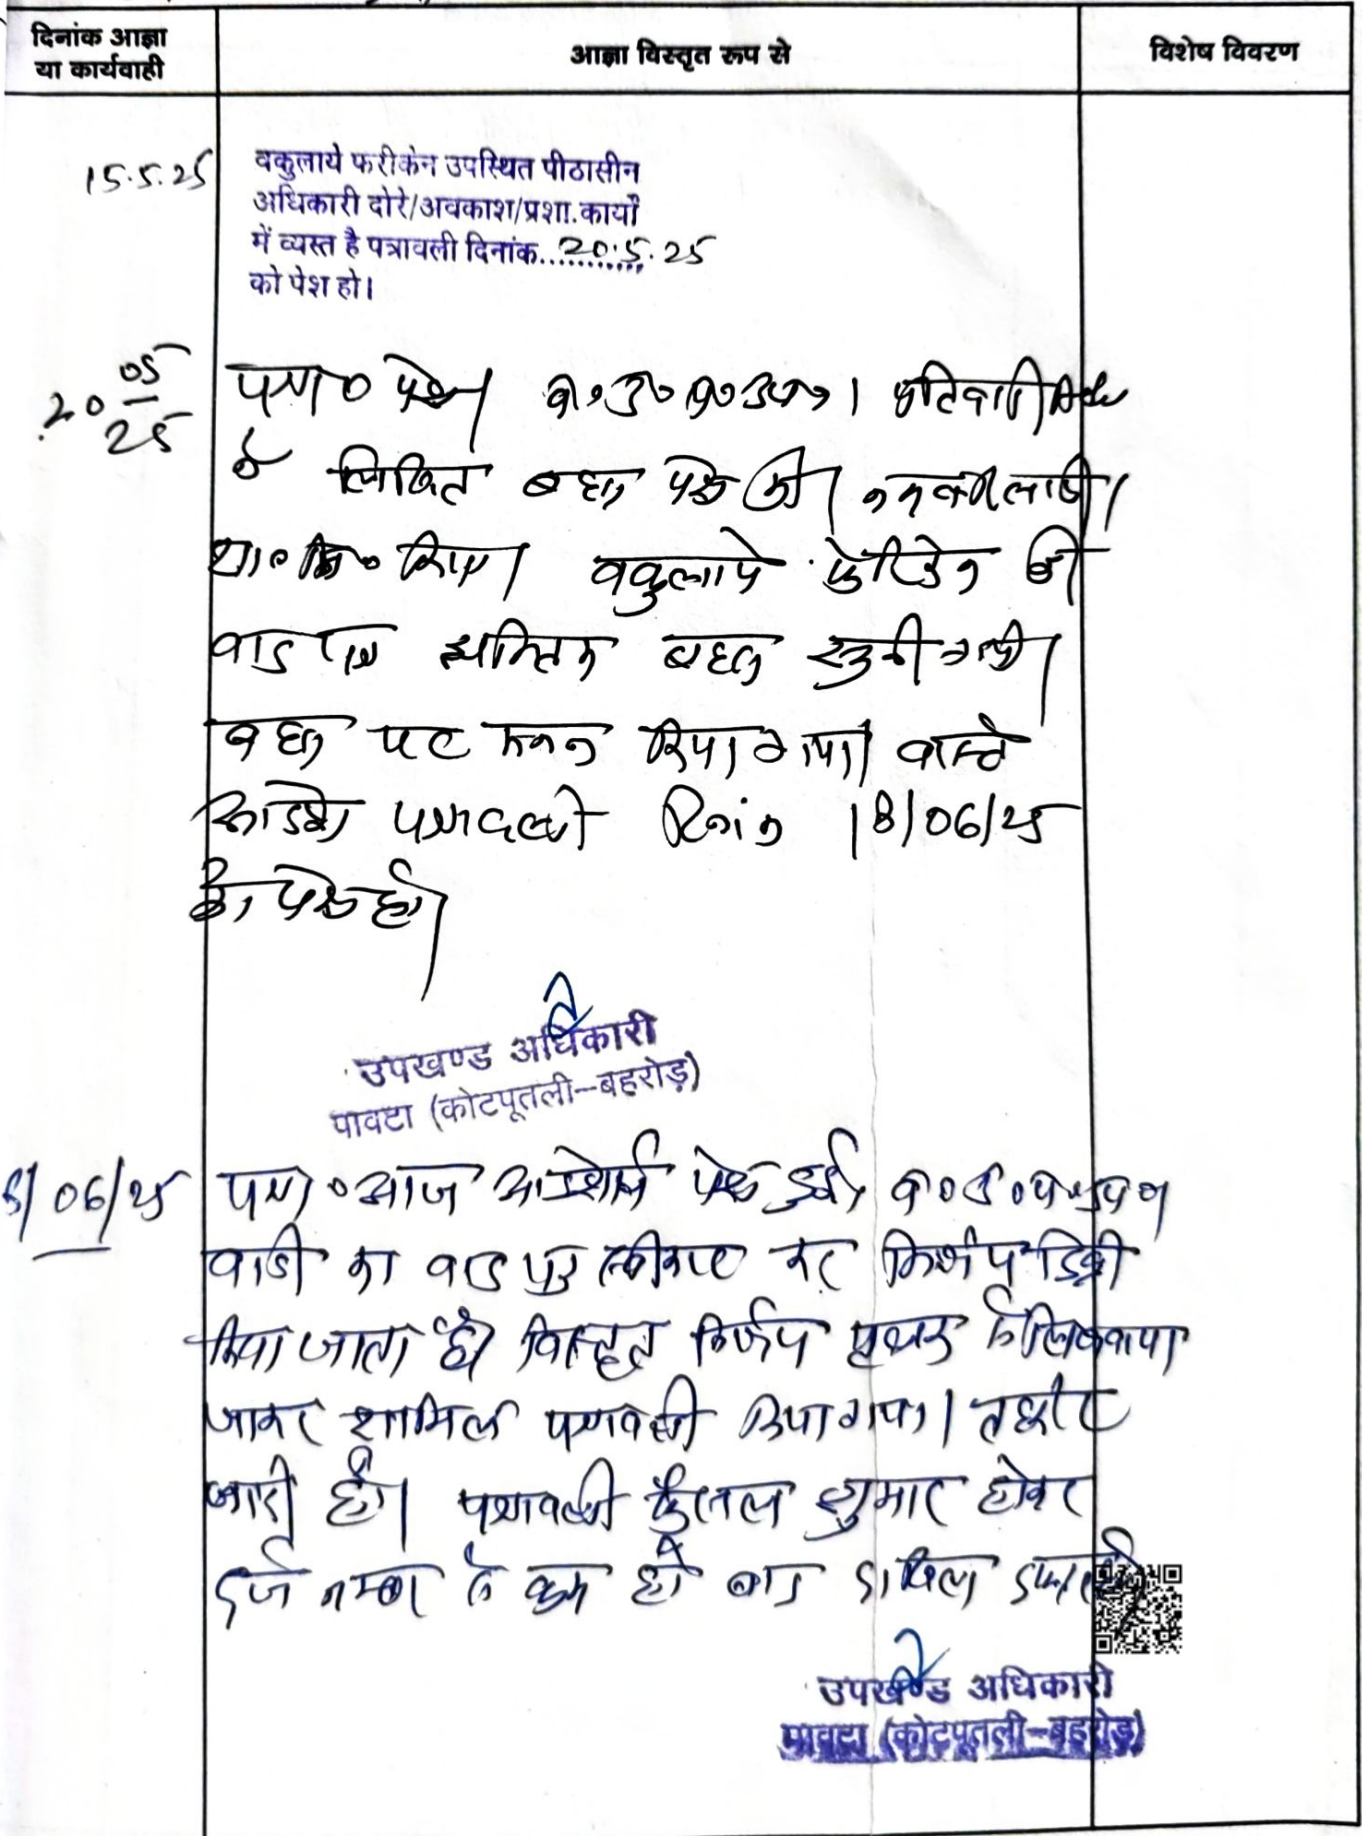 दिनांक आज्ञा
या कार्यवाही
आज्ञा विस्तृत रूप से
विशेष विवरण
15.5.25
वकुलाये फरीकेन उपस्थित पीठासीन
अधिकारी दोरे/अवकाश/प्रशा.कार्यो
में व्यस्त है पत्रावली दिनांक...20.5.25
को पेश हो।
20 05/25
पत्रा० पेश। व०उ०प०उप०। प्रतिवादी
के लिखित बहस पेश की। नकल दी।
शा० मि० किया। वकुलाये फरिकेन की
वाद पत्र अन्तिम बहस सुनी गयी।
बहस पर मनन किया गया। वास्ते
आदेश पत्रावली दिनांक 18/06/25
को पेश हो।
उपखण्ड अधिकारी
पावटा (कोटपूतली-बहरोड़)
/06/25
पत्रा० आज आदेशार्थ पेश हुई।
वादी का वाद पत्र स्वीकार कर निर्णय डिक्री
किया जाता है। विस्तृत निर्णय पृथक से लिखवाया
जाकर शामिल पत्रावली किया गया। तहरीर
जारी हो। पत्रावली फैसल शुमार होकर
दर्ज नम्बर से कम हो बाद दाखिल दफ्तर हो
उपखण्ड अधिकारी
पावटा (कोटपूतली-बहरोड़)